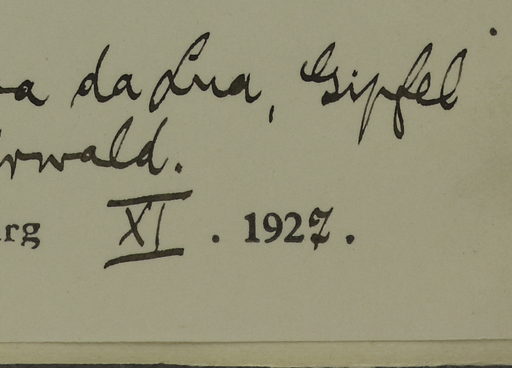 a da Lua, Gipfel
rwald.
rg XI . 1927.